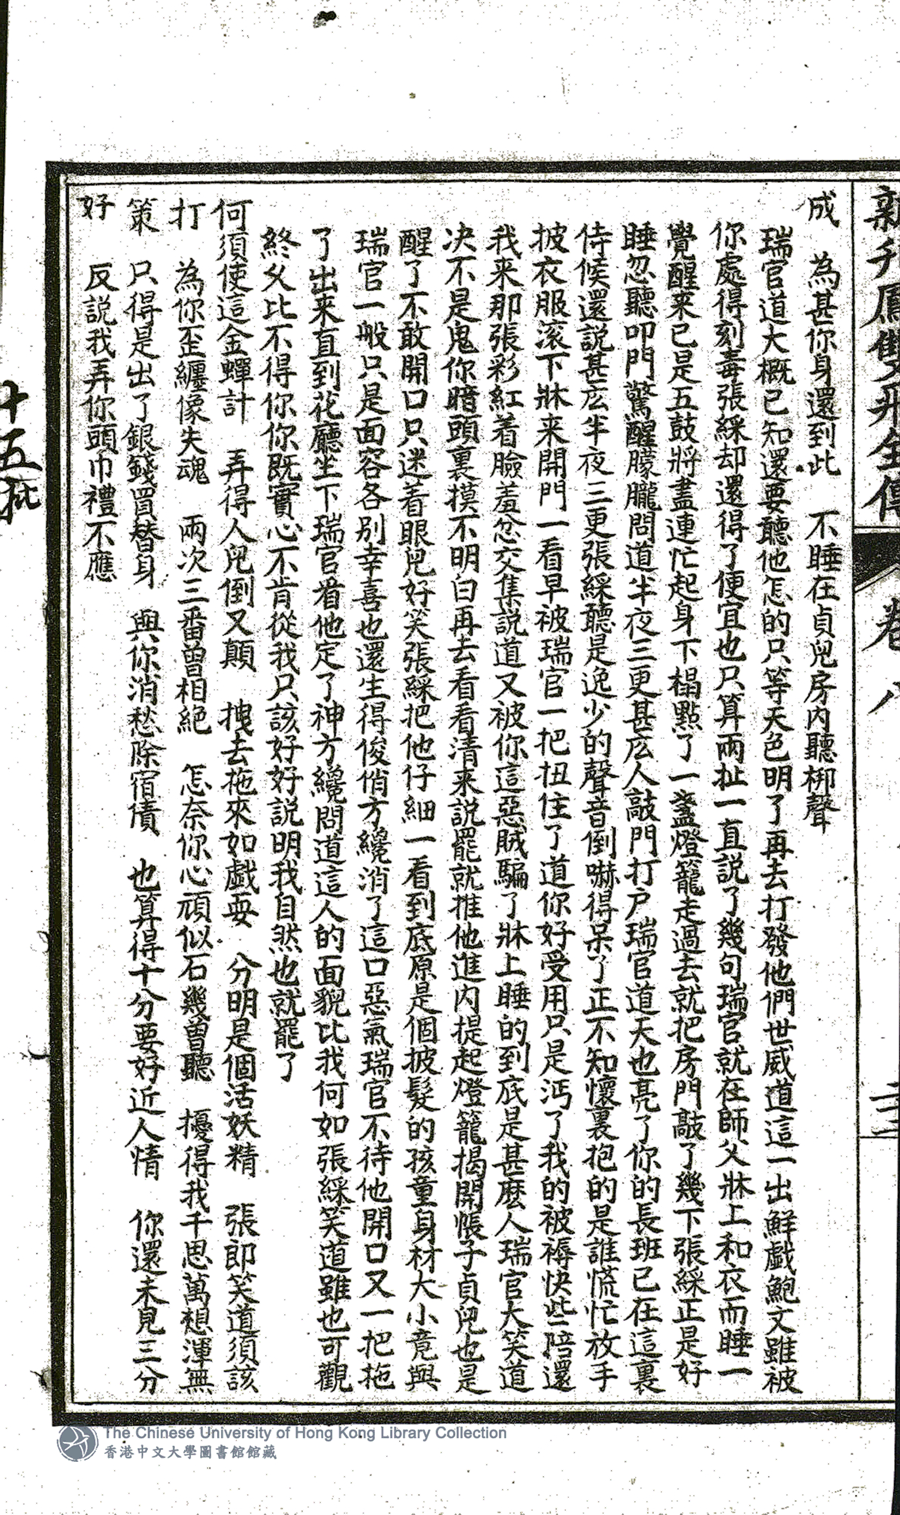 新刊鳳雙飛全傳
卷八
成　為甚你身還到此　不睡在貞兒房內聽柳聲
瑞官道大概已知還要聽他怎的只等天色明了再去打發他們世威道這一出鮮戲鮑文雖被
你處得刻毒張綵却還得了便宜也只算兩扯一直說了幾句瑞官就在師父牀上和衣而睡一
覺醒來已是五鼓將盡連忙起身下榻點了一盞燈籠走過去就把房門敲了幾下張綵正是好
睡忽聽叩門驚醒朦朧問道半夜三更甚庅人敲門打戶瑞官道天也亮了你的長班已在這裏
侍候還說甚庅半夜三更張綵聽是逸少的聲音倒嚇得呆了正不知懷裏抱的是誰慌忙放手
披衣服滚下牀来開門一看早被瑞官一把扭住了道你好受用只是沔了我的被褥快些陪還
我来那張彩紅着臉羞忿交集說道又被你這惡賊騙了牀上睡的到底是甚麽人瑞官大笑道
决不是鬼你暗頭裏摸不明白再去看看清来說罷就推他進内提起燈籠揭開帳子貞兒也是
醒了不敢開口只迷着眼兒好笑張綵把他仔細一看到底原是個披髮的孩童身材大小竟與
瑞官一般只是面容各别幸喜也還生得俊俏方纔消了這口惡氣瑞官不待他開口又一把拖
了出来直到花廳坐下瑞官看他定了神方纔問道這人的面貌比我何如張綵笑道雖也可觀
終久比不得你你既實心不肯從我只該好好說明我自然也就罷了
何須使這金蟬計　弄得人兒倒又顛　拽去拖來如戲耍　分明是個活妖精　張郎笑道須該
打　為你歪纏像失魂　兩次三番曾相絕　怎奈你心頑似石幾曾聽　擾得我千思萬想渾無
策　只得是出了銀錢買替身　與你消愁除宿債　也算得十分要好近人情　你還未見三分
好　反說我弄你頭巾禮不應
十五
The Chinese University of Hong Kong Library Collection
香港中文大學圖書館館藏